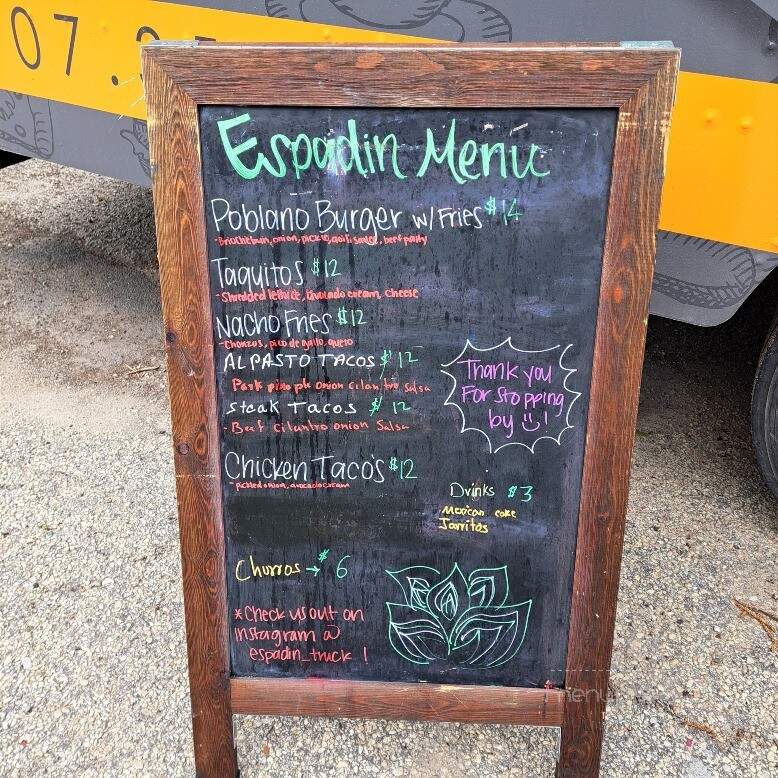 07.
Espadin Menu
Poblano Burger w/ Fries $14
- Briochebun, onion, pickle, aoili sauce, beef patty
Taquitos $12
- Shredded lettuce, avocado cream, cheese
Nacho Fries $12
- Chorizo, pico de gallo, queso
AL PASTO TACOS $12
Pork pineaple onion cilantro salsa
Steak Tacos $12
- Beef cilantro onion Salsa
Thank you
For stopping
by !
Chicken Taco's $12
- pickled onion, avocado cream
Drinks $3
Mexican coke
Jarritos
Churros → $6
*Check us out on
Instagram @
espadin_truck !